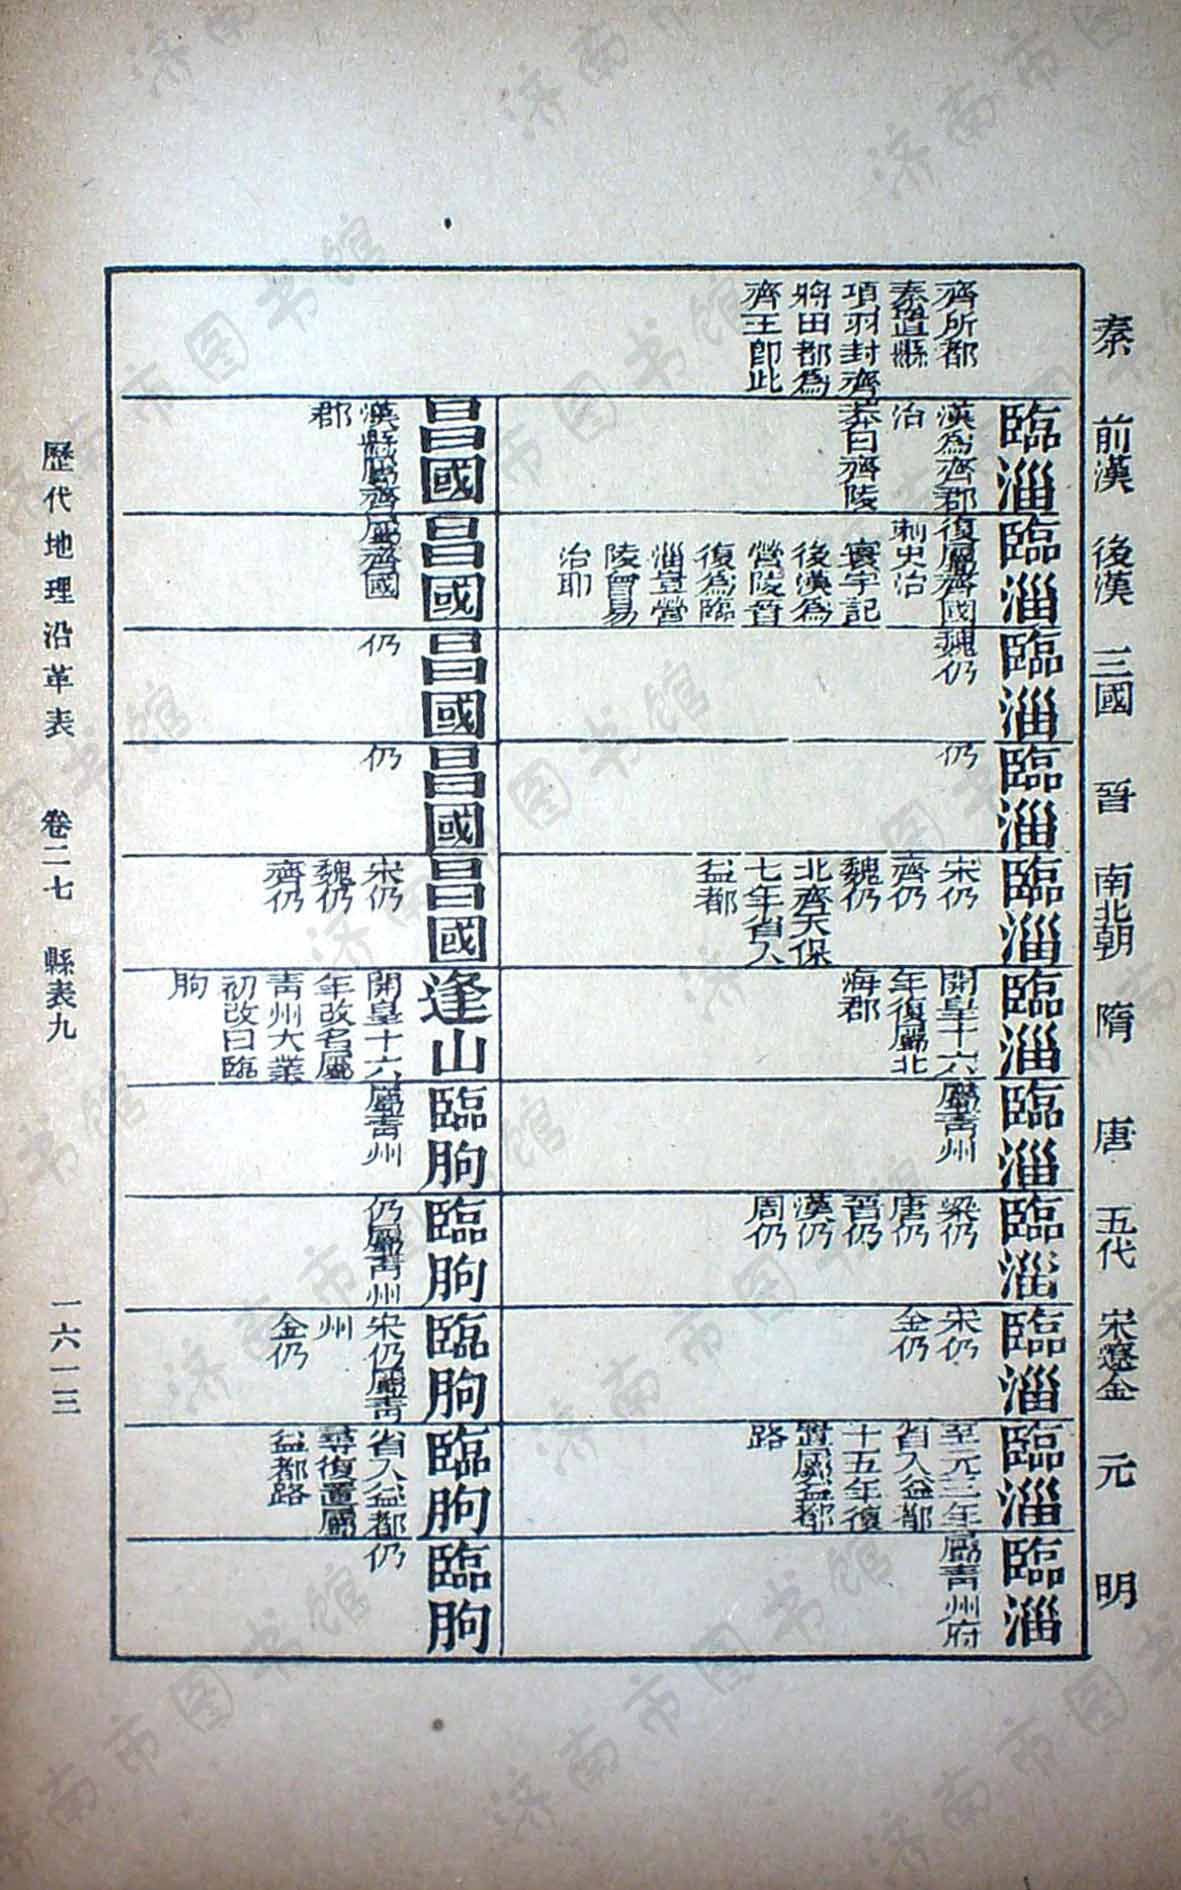 秦
前漢
後漢
三國
晉
南北朝
隋
唐
五代
宋遼金
元
明
齊所都
秦置縣
項羽封齊
將田都為
齊王即此
臨淄
漢為齊郡
治
莽曰齊陵
臨淄
復屬齊國
刺史治
寰宇記
後漢為
營陵晉
復為臨
淄豈營
陵曾易
治耶
臨淄
魏仍
臨淄
仍
臨淄
宋仍
齊仍
魏仍
北齊天保
七年省入
益都
臨淄
開皇十六
年復屬北
海郡
臨淄
屬青州
臨淄
梁仍
唐仍
晉仍
漢仍
周仍
臨淄
宋仍
金仍
臨淄
至元三年
省入益都
十五年復
置屬益都
路
臨淄
屬青州府
昌國
漢縣屬齊
郡
昌國
屬齊國
昌國
仍
昌國
仍
昌國
宋仍
魏仍
齊仍
逢山
開皇十六
年改名屬
青州大業
初改曰臨
朐
臨朐
屬青州
臨朐
仍屬青州
臨朐
宋仍屬青
州
金仍
臨朐
省入益都
尋復置屬
益都路
臨朐
仍
歷代地理沿革表 卷二七 縣表九 一六一三
济南市图书馆